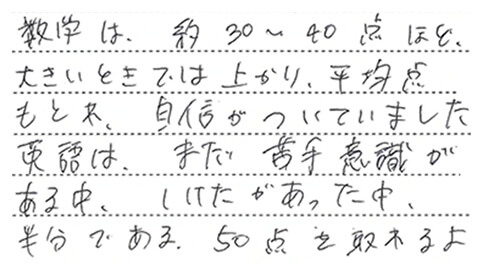 数学は、約30〜40点ほど、
大きいときでは上がり、平均点
もとれ、自信がついていました
英語は、まだ苦手意識が
ある中、1けたがあった中、
半分である、50点を取れるよ